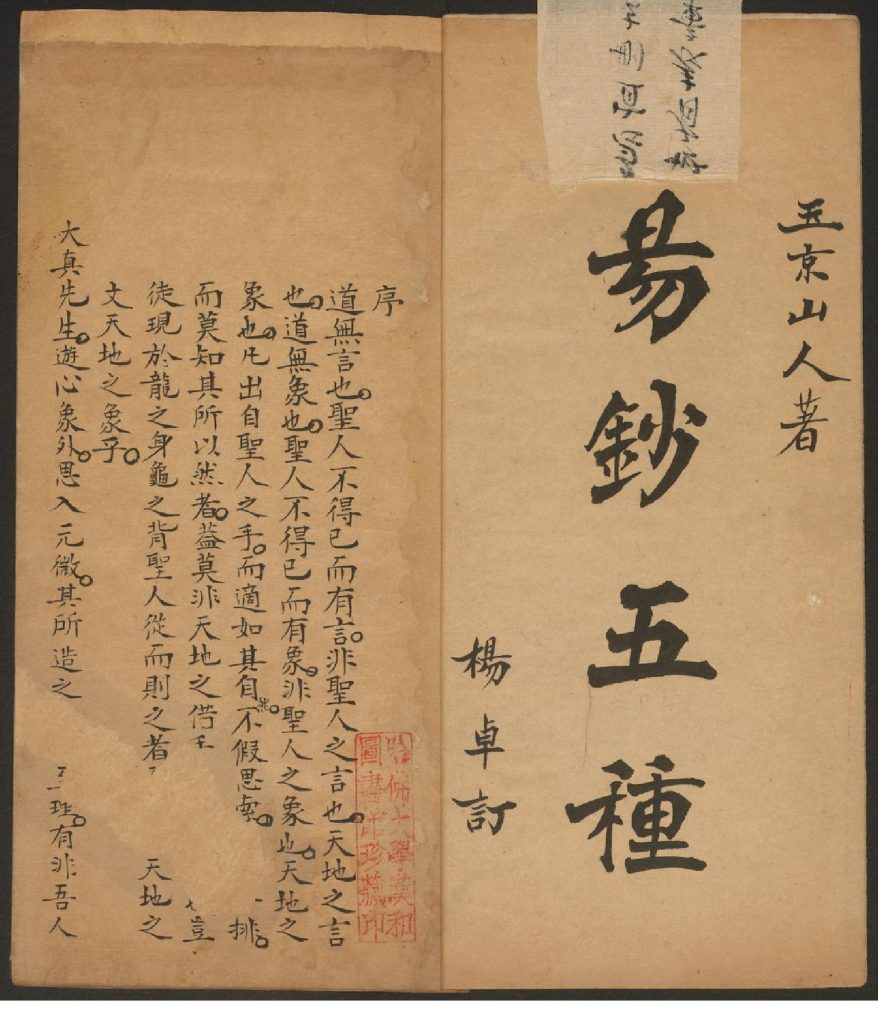 玉京山人著
易鈔五種
楊卓訂
序
道無言也。聖人不得已而有言。非聖人之言也。天地之言
也。道無象也。聖人不得已而有象。非聖人之象也。天地之
象也。凡出自聖人之手。而適如其自然。不假思索。排。
而莫知其所以然者。蓋莫非天地之借豈
徒現於龍之身龜之背聖人從而則之者天地之
文天地之象乎。
大真先生。遊心象外。思入元微。其所造之理。有非吾人
哈佛大學漢和
圖書館珍藏印